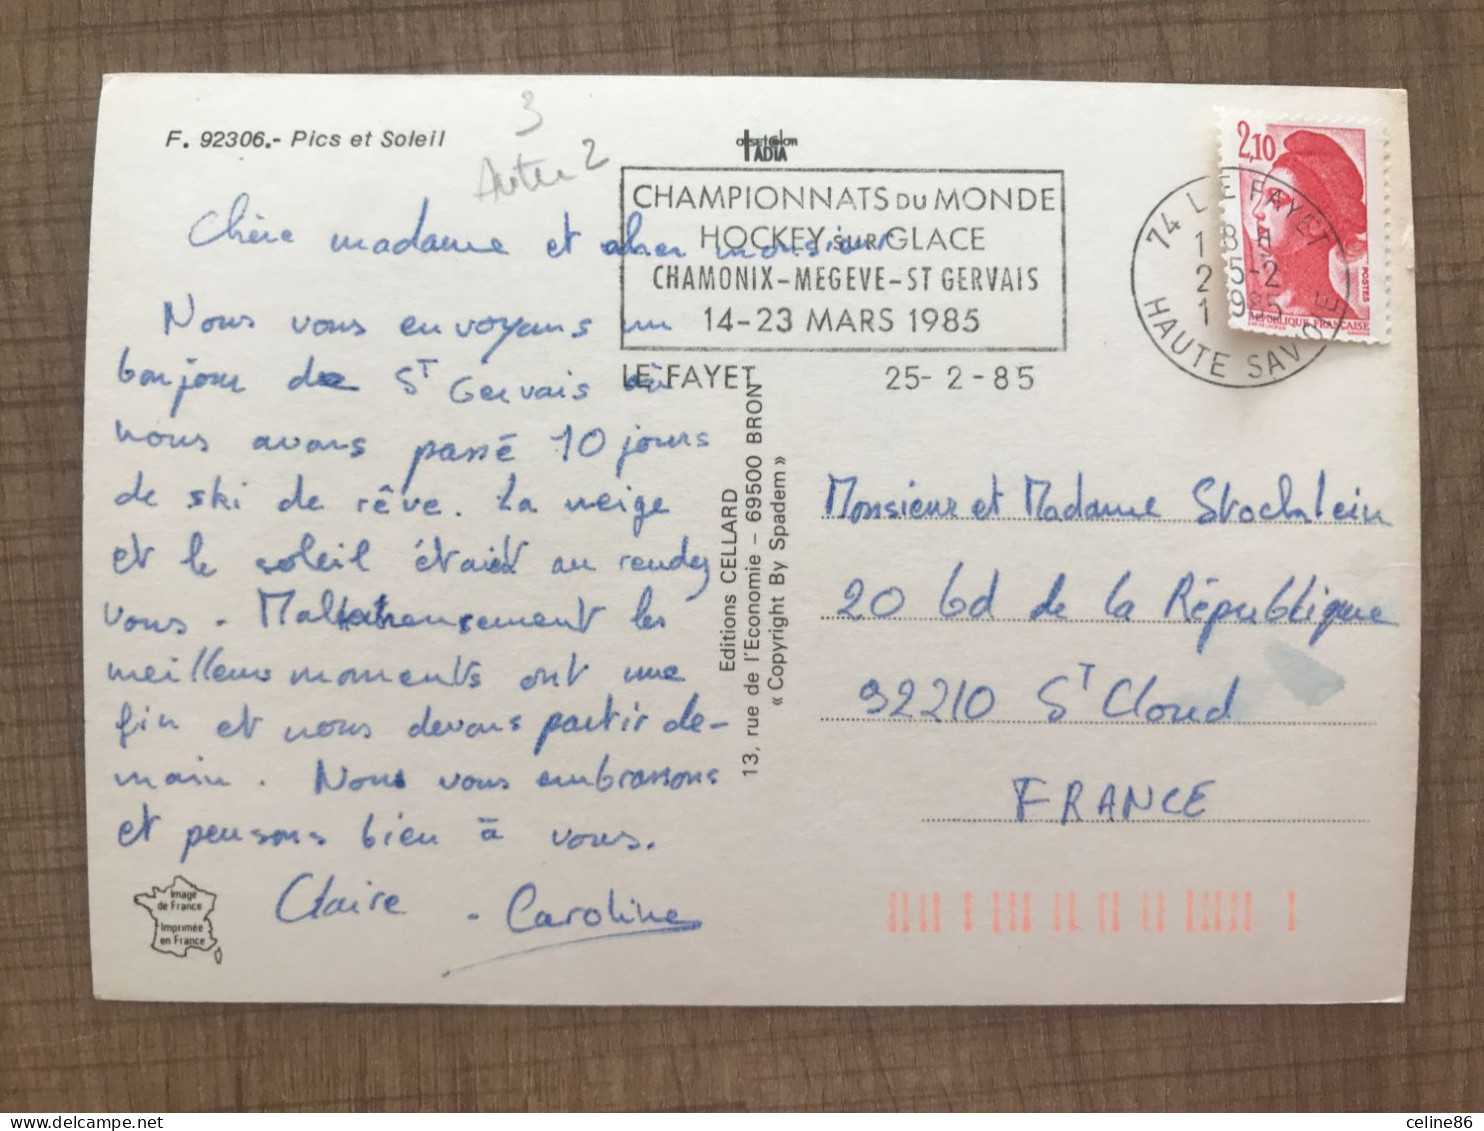 F. 92306.- Pics et Soleil
3
2
TADIA
CHAMPIONNATS DU MONDE
HOCKEY SUR GLACE
CHAMONIX-MEGEVE-ST GERVAIS
14-23 MARS 1985
LE FAYET 25- 2 -85
74 LE FAYET
18 H
25-2
1985
HAUTE SAVOIE
2,10
POSTES
REPUBLIQUE FRANÇAISE
Chère madame et cher monsieur
Nous vous envoyons un
bonjour de ST Gervais où
nous avons passé 10 jours
de ski de rêve. La neige
et le soleil était au rendez
vous. Malheureusement les
meilleurs moments ont une
fin et nous devons partir de-
main. Nous vous embrassons
et pensons bien à vous.
Claire - Caroline
Editions CELLARD
13, rue de l'Economie - 69500 BRON
« Copyright By Spadem »
Monsieur et Madame
20 bd de la République
92210 ST Cloud
FRANCE
Image
de France
Imprimée
en France
celine86